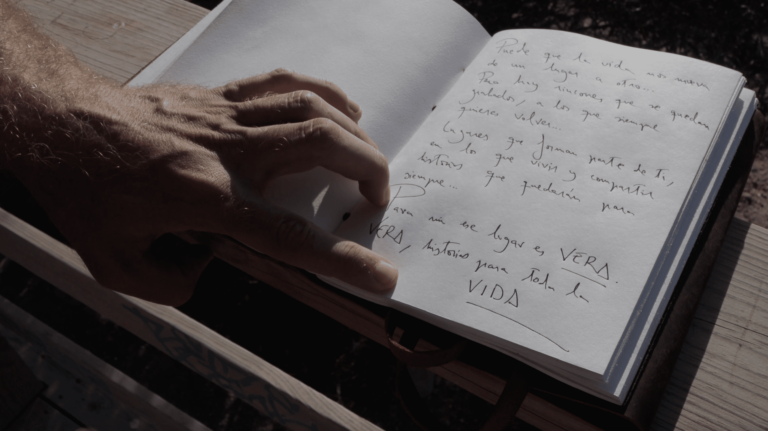 Puede que la vida nos mueva
de un lugar a otro...
Pero hay rincones que se quedan
grabados, a los que siempre
quieres volver...
Lugares que forman parte de ti,
en los que vivir y compartir
historias que quedarán para
siempre...
Para mí ese lugar es VERA.
VERA, historias para toda la
VIDA